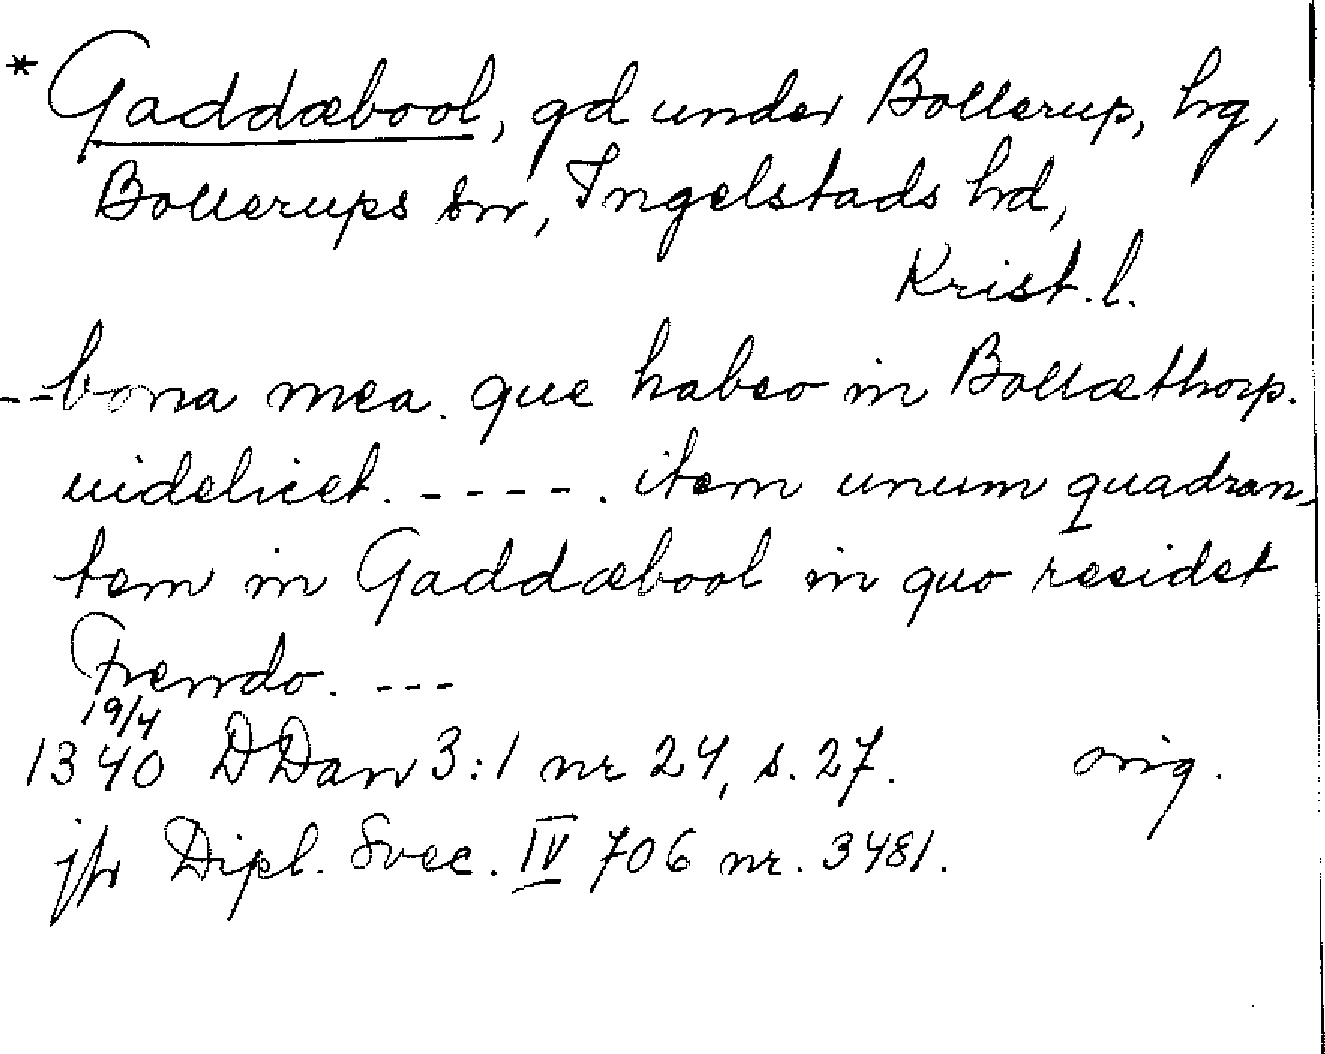 * Gaddæbool, gd under Bollerup, hg,
Bollerups sn, Ingelstads hd,
Krist. l.
-- bona mea. que habeo in Bollæthorp.
uidelicet. - - - - . item unum quadran-
tem in Gaddæbool in quo residet
Frendo. ---
19/4
1340 DDan 3:1 nr 24, s. 27. orig.
jfr Dipl. Svec. IV 706 nr. 3481.